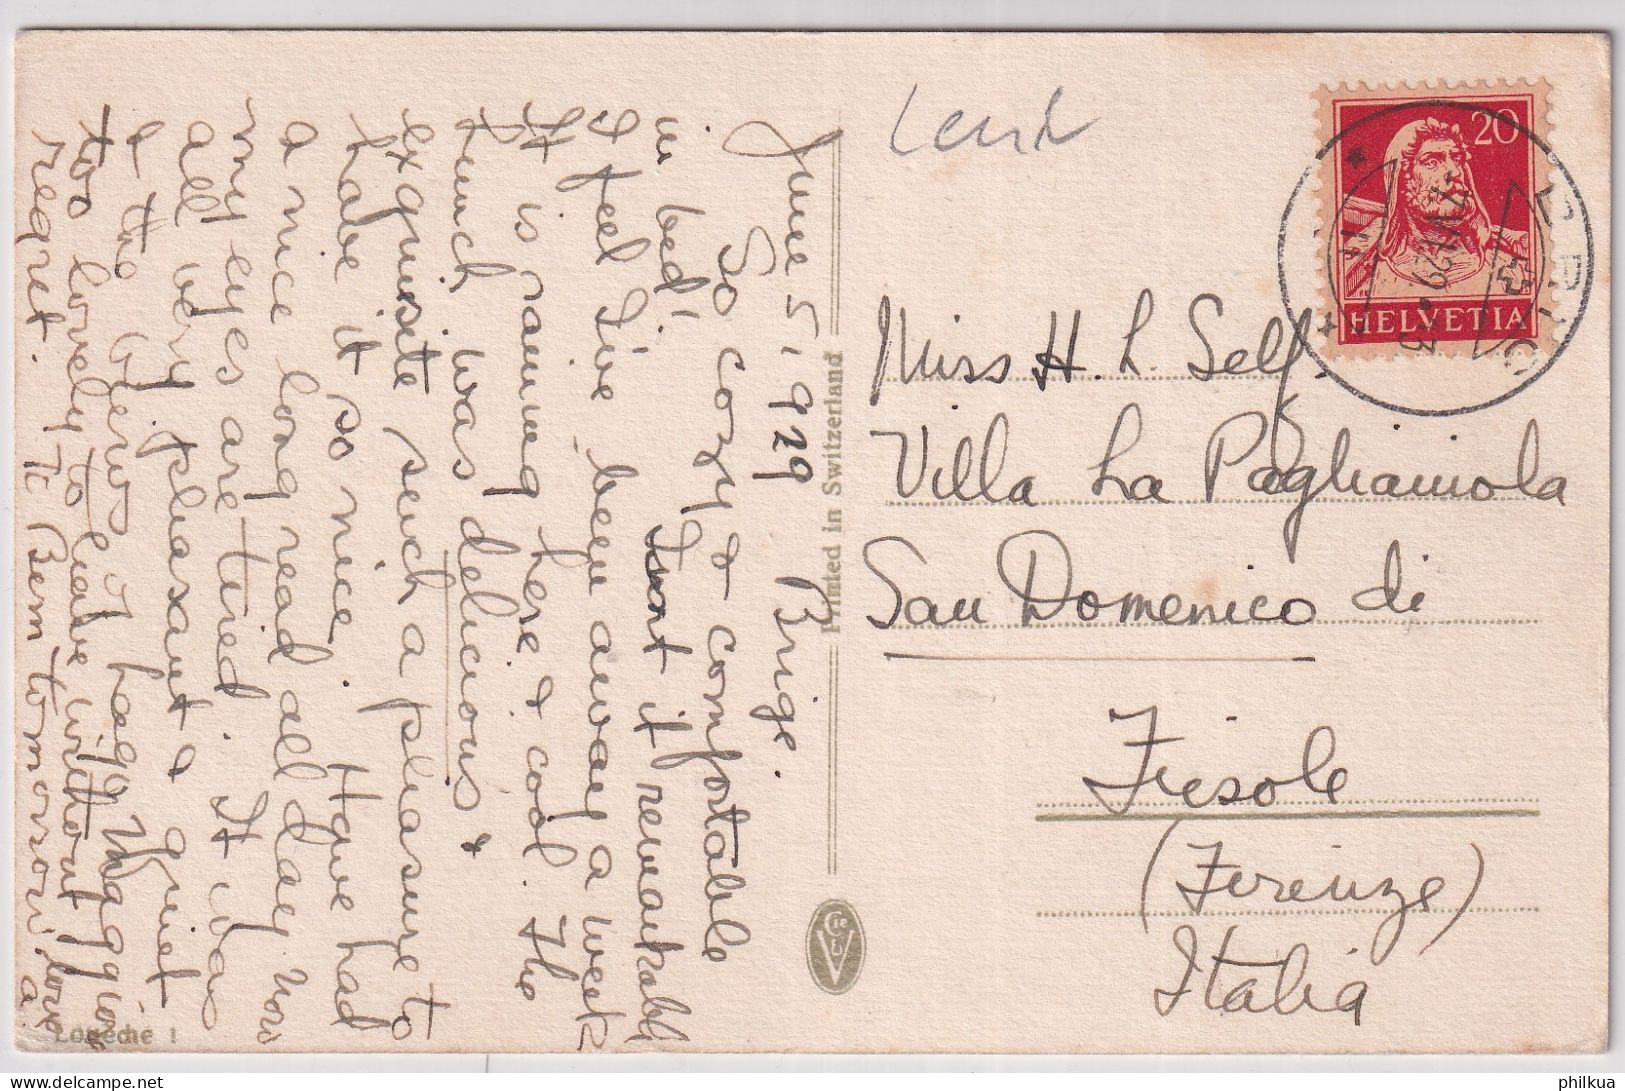 June 5. 1929 Brige.
So cozy & comfortable
in bed. Isn't it remarkable
I feel I've been away a week
It is raining here & cool. The
lunch was delicious &
exquisite such a pleasure to
have it so nice. Have had
a nice long read all day now
my eyes are tired. It was
all very pleasant & quiet
& the views of Lago Maggiore
too lovely to leave without
regret. To Bern tomorrow. love
a.
Printed in Switzerland
Loèche 1
Leuk
20
HELVETIA
BRIG
Miss H. L. Self.
Villa La Pagliaiuola
San Domenico di
Fiesole
(Firenze)
Italia
philkua